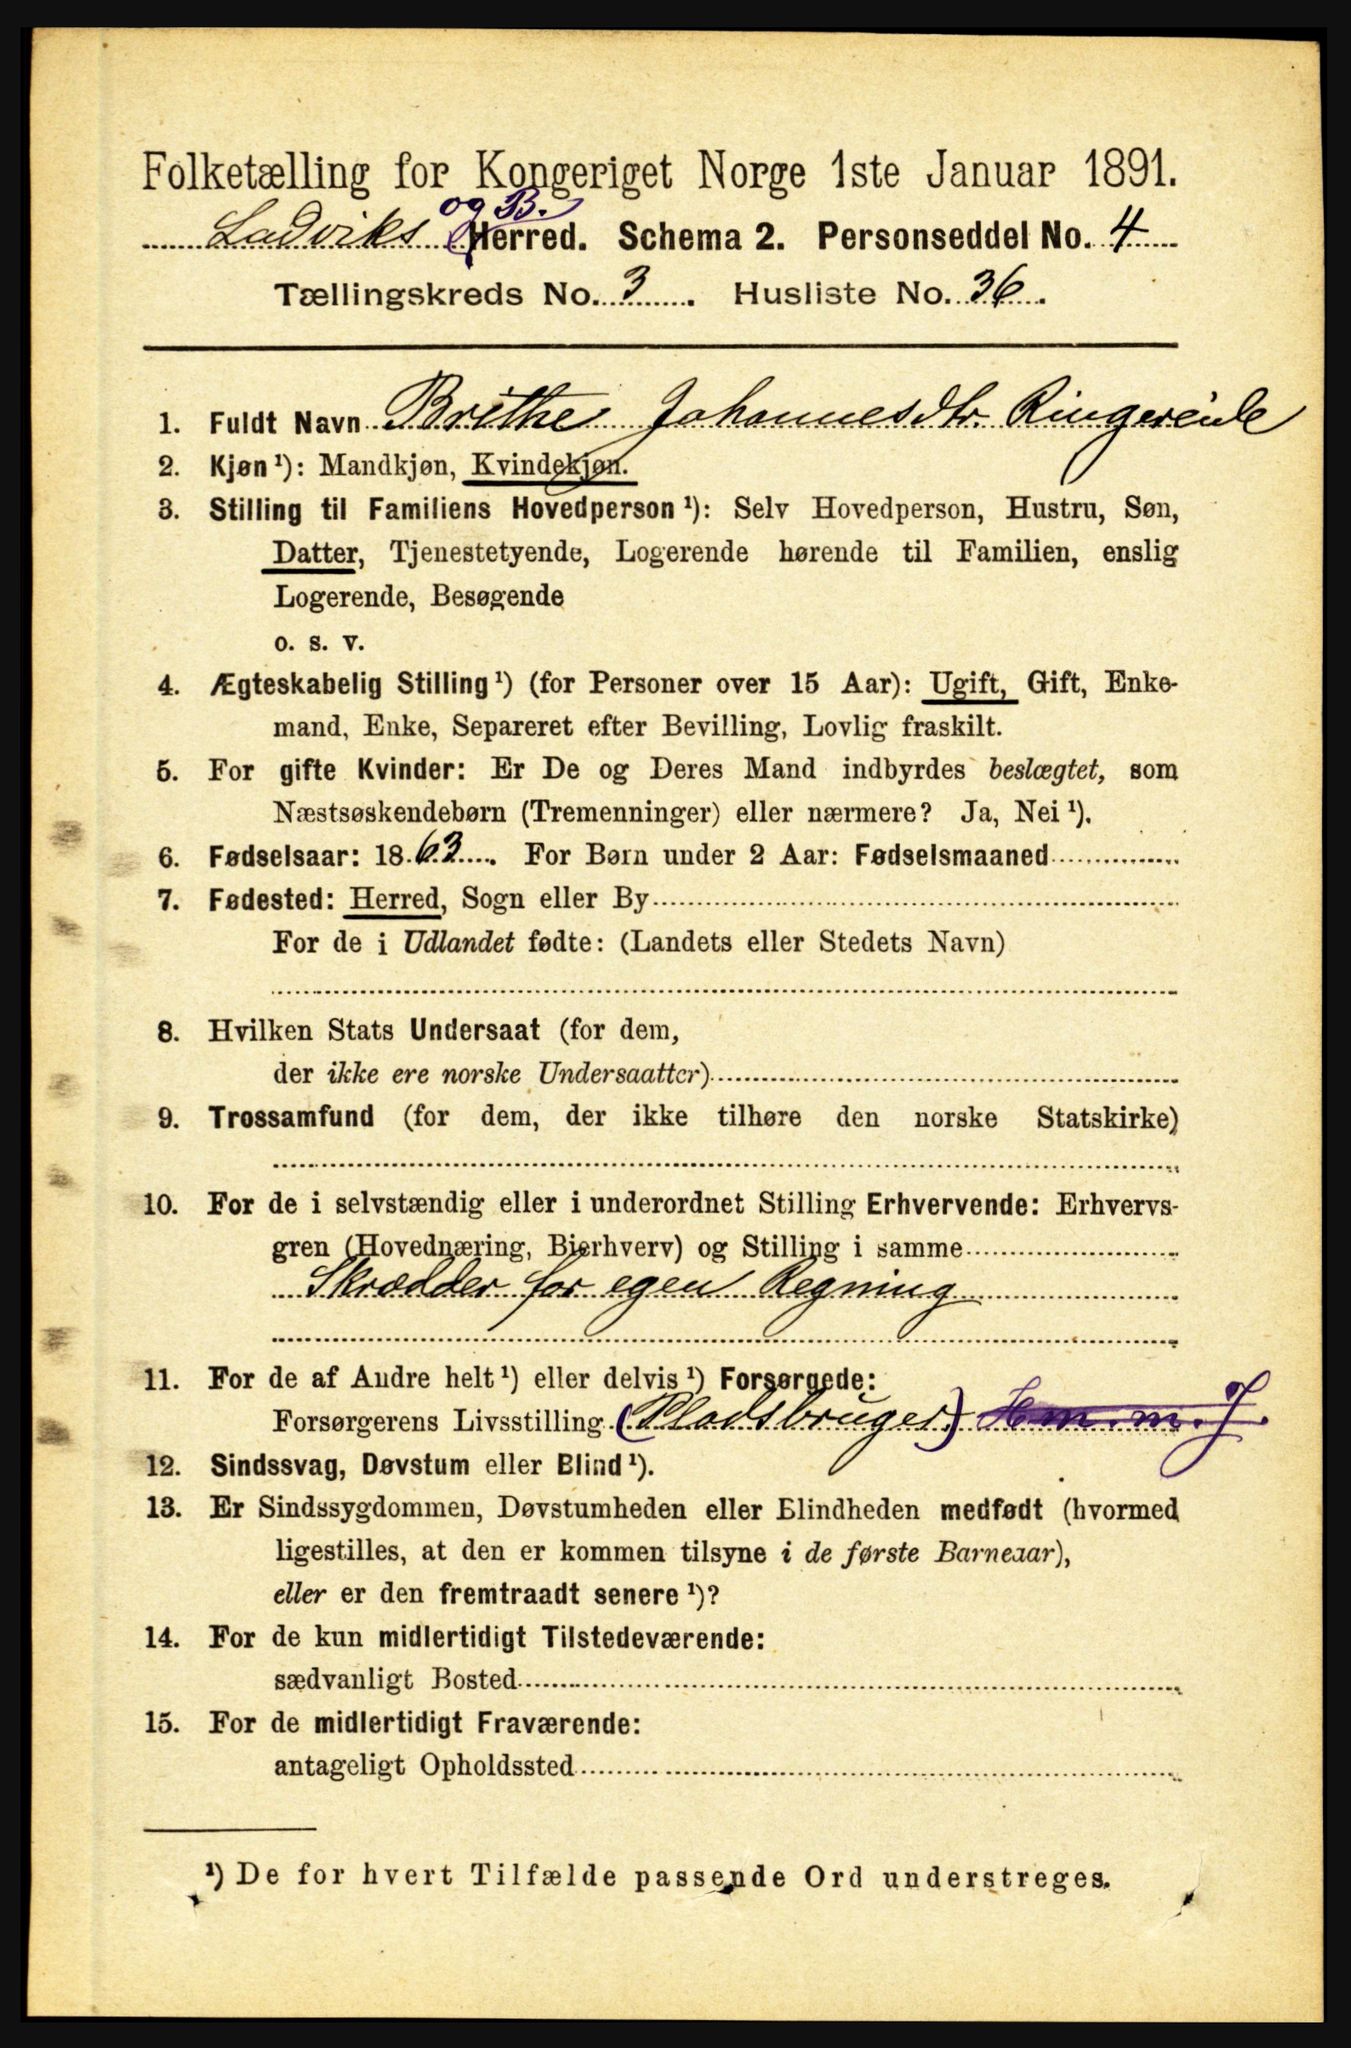 Folketælling for Kongeriget Norge 1ste Januar 1891.
og B.
Ladviks Herred. Schema 2. Personseddel No. 4
Tællingskreds No. 3. Husliste No. 36.
1. Fuldt Navn Brithe Johannesdtr. Ringereide
2. Kjøn ¹): Mandkjøn, Kvindekjøn.
3. Stilling til Familiens Hovedperson ¹): Selv Hovedperson, Hustru, Søn,
Datter, Tjenestetyende, Logerende hørende til Familien, enslig
Logerende, Besøgende
o. s. v.
4. Ægteskabelig Stilling ¹) (for Personer over 15 Aar): Ugift, Gift, Enke-
mand, Enke, Separeret efter Bevilling, Lovlig fraskilt.
5. For gifte Kvinder: Er De og Deres Mand indbyrdes beslægtet, som
Næstsøskendebørn (Tremenninger) eller nærmere? Ja, Nei ¹).
6. Fødselsaar: 1863. For Børn under 2 Aar: Fødselsmaaned
7. Fødested: Herred, Sogn eller By
For de i Udlandet fødte: (Landets eller Stedets Navn)
8. Hvilken Stats Undersaat (for dem,
der ikke ere norske Undersaatter)
9. Trossamfund (for dem, der ikke tilhøre den norske Statskirke)
10. For de i selvstændig eller i underordnet Stilling Erhvervende: Erhvervs-
gren (Hovednæring, Bierhverv) og Stilling i samme
Skrædder for egen Regning
11. For de af Andre helt ¹) eller delvis ¹) Forsørgede:
Forsørgerens Livsstilling (Pladsbruger) H m. m. J.
12. Sindssvag, Døvstum eller Blind ¹).
13. Er Sindssygdommen, Døvstumheden eller Blindheden medfødt (hvormed
ligestilles, at den er kommen tilsyne i de første Barneaar),
eller er den fremtraadt senere ¹)?
14. For de kun midlertidigt Tilstedeværende:
sædvanligt Bosted
15. For de midlertidigt Fraværende:
antageligt Opholdssted
¹) De for hvert Tilfælde passende Ord understreges.